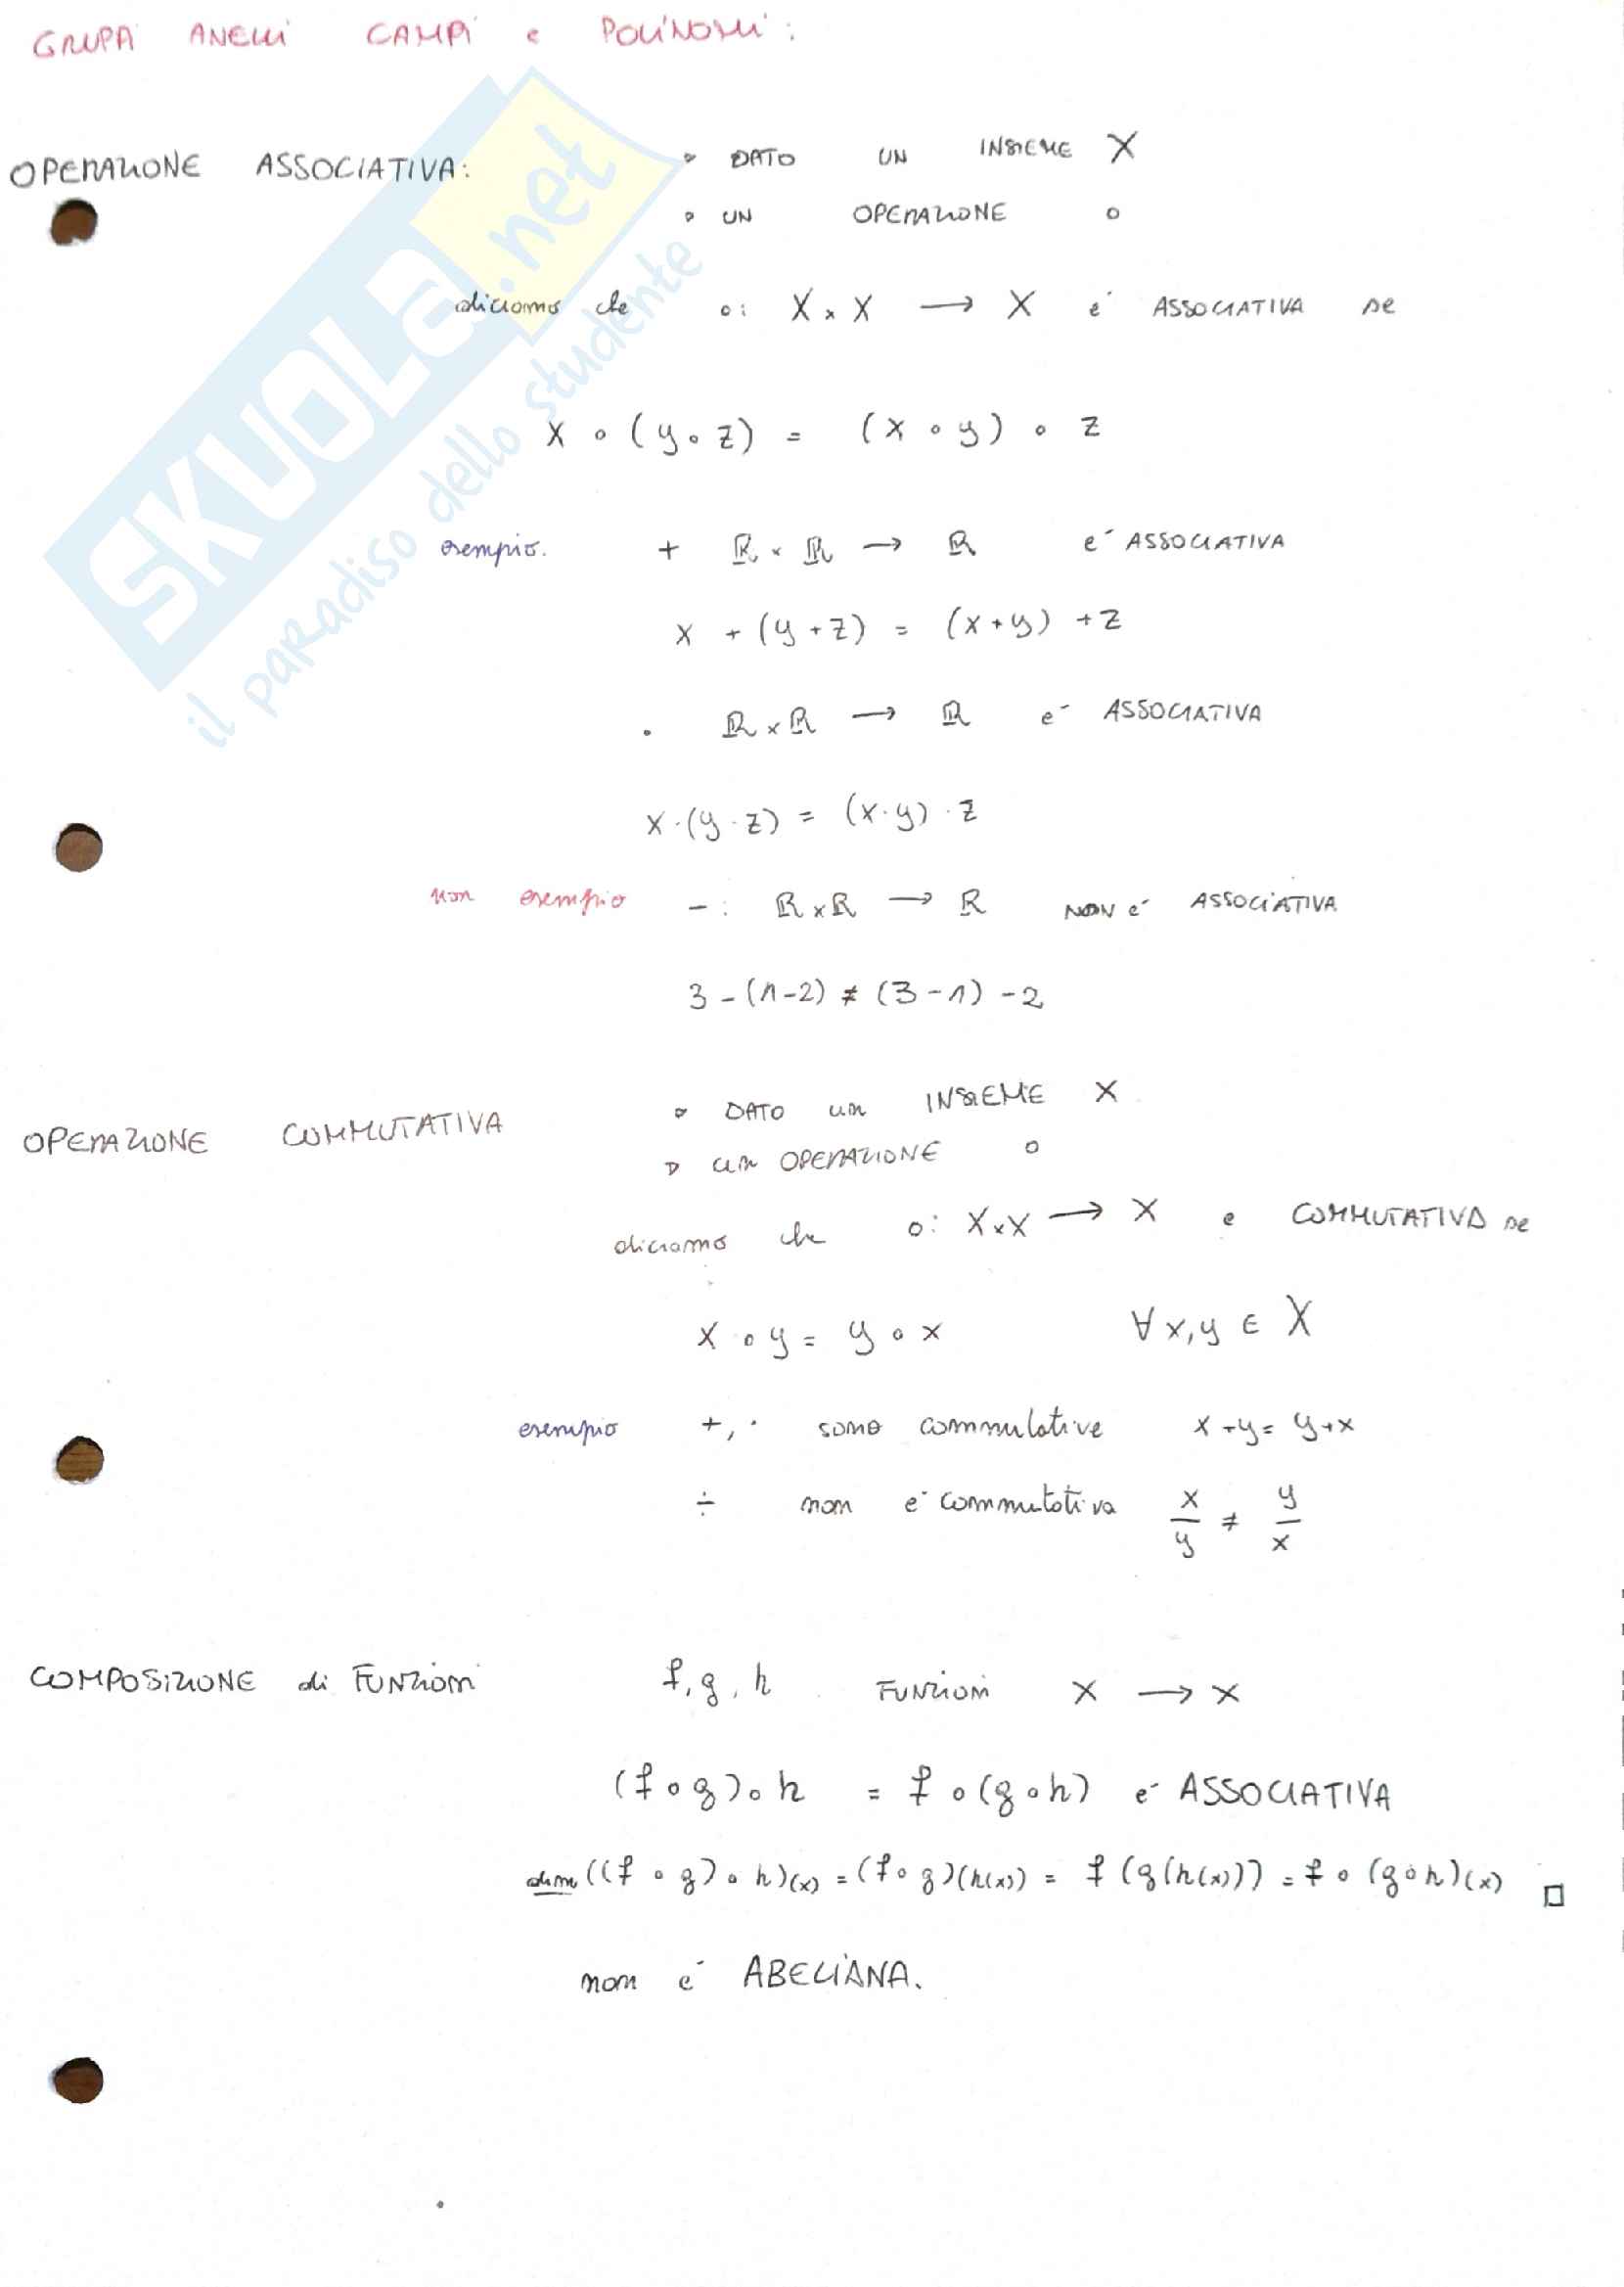 GRUPPI ANELLI CAMPI e POLINOMI:
OPERAZIONE ASSOCIATIVA: ▹ DATO UN INSIEME X
▹ UN OPERAZIONE ∘
diciamo che ∘: X × X → X é ASSOCIATIVA se
x ∘ (y ∘ z) = (x ∘ y) ∘ z
esempio. + ℝ × ℝ → ℝ é ASSOCIATIVA
x + (y + z) = (x + y) + z
· ℝ × ℝ → ℝ é ASSOCIATIVA
x · (y · z) = (x · y) · z
non esempio − : ℝ × ℝ → ℝ NON é ASSOCIATIVA
3 − (1 − 2) ≠ (3 − 1) − 2
OPERAZIONE COMMUTATIVA ▹ DATO un INSIEME X
▹ un OPERAZIONE ∘
diciamo che ∘: X × X → X e COMMUTATIVA se
x ∘ y = y ∘ x ∀ x, y ∈ X
esempio +, · sono commutative x + y = y + x
÷ non é commutativa x/y ≠ y/x
COMPOSIZIONE di FUNZIONI f, g, h FUNZIONI X → X
(f ∘ g) ∘ h = f ∘ (g ∘ h) é ASSOCIATIVA
dim ((f ∘ g) ∘ h)(x) = (f ∘ g)(h(x)) = f (g(h(x))) = f ∘ (g ∘ h)(x) □
non é ABELIANA.
SKUOLA.net
il paradiso dello studente